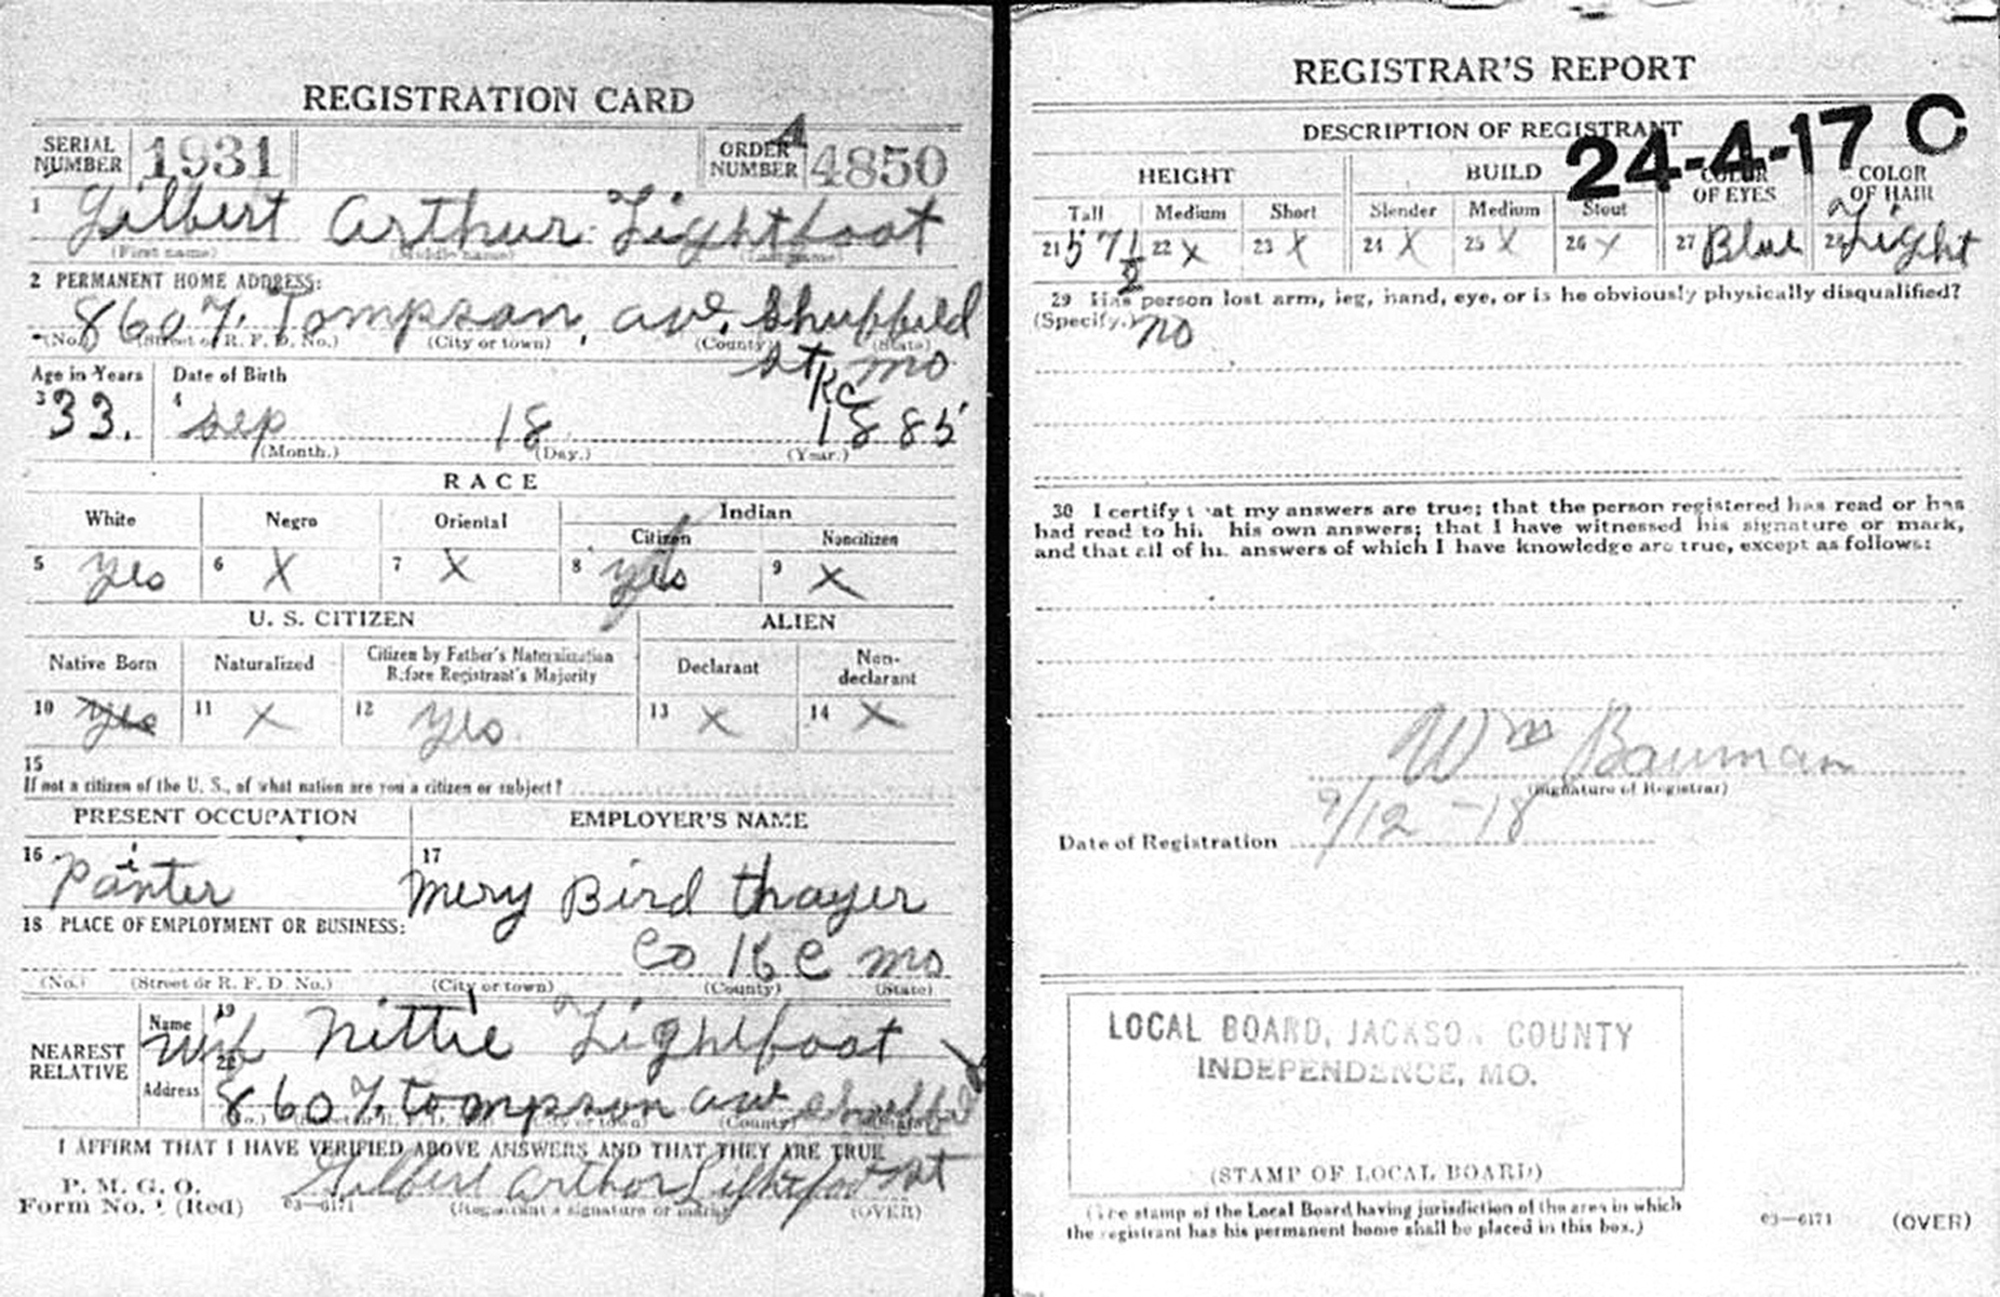 REGISTRATION CARD
SERIAL NUMBER 1931 ORDER NUMBER A 4850
1 Gilbert Arthur Lightfoot
(First name) (Middle name) (Last name)
2 PERMANENT HOME ADDRESS:
8607. Tompson, ave, Sheffield
(No.) (Street or R. F. D. No.) (City or town) (County) (State)
St KC mo
Age in Years Date of Birth
3 33. 4 Sep 18 1885
(Month.) (Day.) (Year.)
RACE
White Negro Oriental Indian
Citizen Noncitizen
5 yes 6 X 7 X 8 yes 9 X
U. S. CITIZEN ALIEN
Native Born Naturalized Citizen by Father's Naturalization Before Registrant's Majority Declarant Non-declarant
10 yes 11 X 12 yes 13 X 14 X
15
If not a citizen of the U. S., of what nation are you a citizen or subject?
PRESENT OCCUPATION EMPLOYER'S NAME
16 Painter 17 Mery Bird thayer
18 PLACE OF EMPLOYMENT OR BUSINESS:
Co K C mo
(No.) (Street or R. F. D. No.) (City or town) (County) (State)
NEAREST RELATIVE
Name 19 Wif Nittie Lightfoot
Address 20 8607. tompson ave Sheffild
(No.) (City or town) (County) (State)
I AFFIRM THAT I HAVE VERIFIED ABOVE ANSWERS AND THAT THEY ARE TRUE
P. M. G. O.
Form No. 1 (Red) 03—6171 Gilbert Arthor Lightfoot
(Registrant's signature or mark) (OVER)
REGISTRAR'S REPORT
24-4-17 C
DESCRIPTION OF REGISTRANT
HEIGHT BUILD COLOR OF EYES COLOR OF HAIR
Tall Medium Short Slender Medium Stout
21 5 7 1/2 22 X 23 X 24 X 25 X 26 X 27 Blue 28 Light
29 Has person lost arm, leg, hand, eye, or is he obviously physically disqualified?
(Specify.) no
30 I certify that my answers are true; that the person registered has read or has
had read to him his own answers; that I have witnessed his signature or mark,
and that all of his answers of which I have knowledge are true, except as follows:
Wm Bauman
(Signature of Registrar)
Date of Registration 9/12-18
LOCAL BOARD, JACKSON COUNTY
INDEPENDENCE, MO.
(STAMP OF LOCAL BOARD)
(The stamp of the Local Board having jurisdiction of the area in which
the registrant has his permanent home shall be placed in this box.)
03—6171 (OVER)